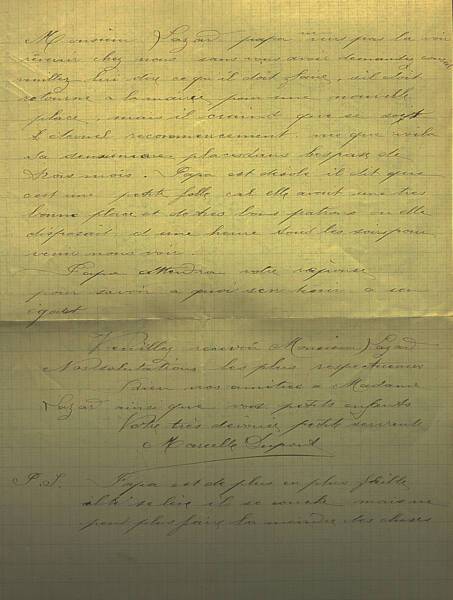 Monsieur Lazard papa n'ius pas la voir
revenir chez nous sans vous avoir demander conseil
veuillez lui dire ce qu'il doit faire, s'il doit
retourné a la mairie pour une nouvelle
place, mais il craint que se soit
L'éternel recommencement, que voila
sa deuxieme place dans l'espase de
trois mois. Papa est désolé il dit que
c'est une petite folle car elle avait une très
bonne place et de très bons patrons ou elle
disposait d'une heure tous les soirs pour
venir nous voir.
Papa attendra votre réponse
pour savoir a quoi s'en tenir a son
égard
Veuillez recevoir Monsieur Lazard
Nos salutations les plus respectueuses
Bien nos amitiés a Madame
Lazard ainsi que vos petits enfants
Votre très dévouée petite servante
Marcelle Dupont
P.S. Papa est de plus en plus faible
il se lève il se couche mais ne
peut plus faire la moindre des choses